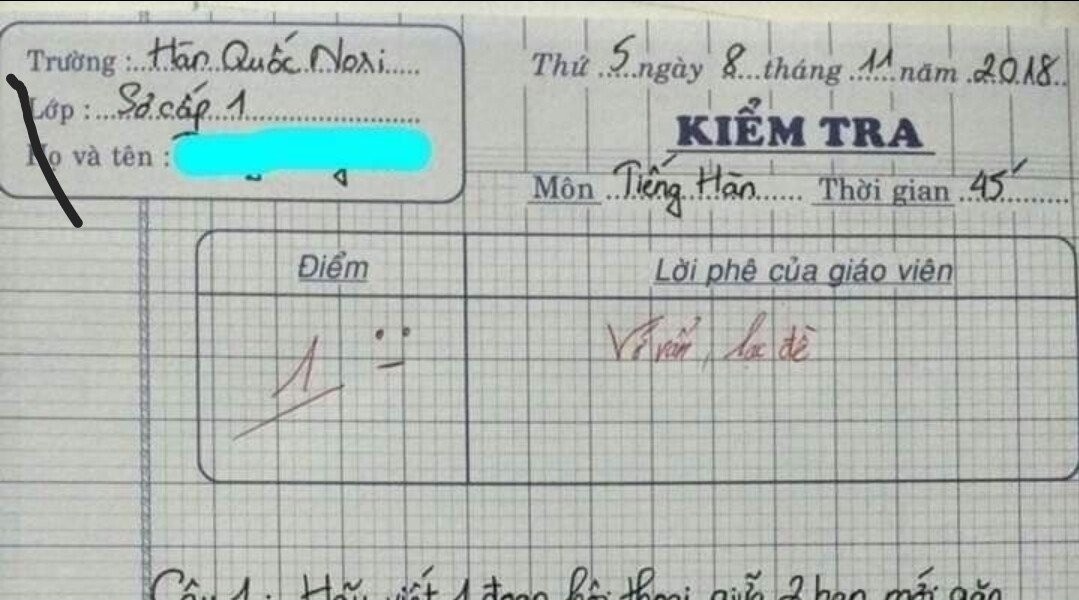 Trường : Hàn Quốc Nori
Lớp : Sơ cấp 1
Họ và tên :
Thứ 5 ngày 8 tháng 11 năm 2018
KIỂM TRA
Môn Tiếng Hàn Thời gian 45'
Điểm
Lời phê của giáo viên
1
Vớ vẩn, lạc đề
Câu 1 : Hãy viết 1 đoạn hội thoại giữa 2 bạn mới gặp